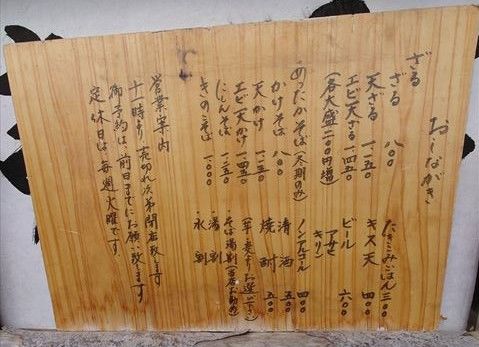 おしながき
ざる
ざる 八〇〇
天ざる 一一五〇
エビ天ざる 一四五〇
(各大盛二〇〇円増)
あったかそば(冬期のみ)
かけそば 八〇〇
天かけ 一一五〇
エビ天かけ 一四五〇
にしんそば 一一五〇
きのこそば 一〇〇〇
たきこみごはん 三〇〇
キス天 四〇〇
ビール 六〇〇
アサヒ
キリン
ノンアルコール 四〇〇
清酒 五〇〇
焼酎 五〇〇
(芋、麦よりお選び下さい)
・そば湯割(当店お勧め)
・湯割
・水割
営業案内
十一時より売切れ次第閉店致します
御予約は、前日までにお願い致します
定休日は毎週火曜です